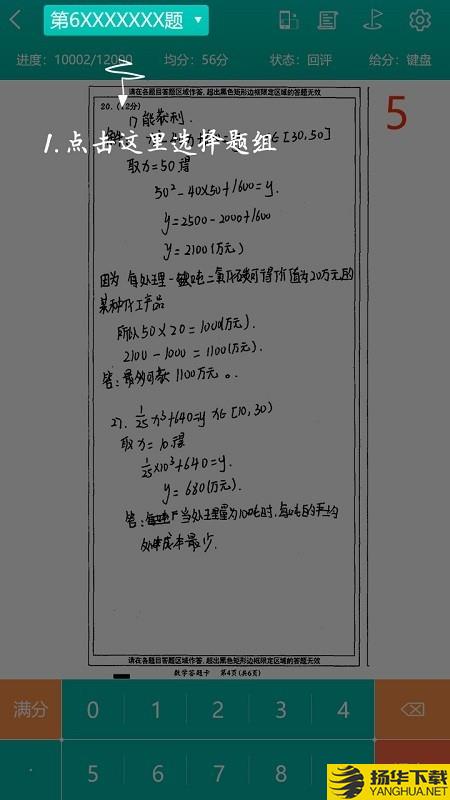 第6XXXXXXX题
进度：10002/12000 均分：56分 状态：回评 给分：键盘
请在各题目答题区域作答，超出黑色矩形边框限定区域的答题无效
20.(12分)
1.点击这里选择题组
5
1) 能获利.
∈[30,50]
取x=50 得
50²-40×50+1600=y.
y=2500-2000+1600
y=2100(万元)
因为 每处理一吨二氧化碳可得价值为20万元的
某种化工产品
所以50×20=1000(万元).
2100-1000=1100(万元).
答：最多可获 1100万元。
2). 1/25 x³+640=y x∈[10,30)
取x=10.得
1/25×10³+640=y.
y=680(万元).
答： 当处理量为10吨时,每吨的平均
处理成本最少.
请在各题目答题区域作答，超出黑色矩形边框限定区域的答题无效
数学答题卡 第4页(共6页)
满分 0 1 2 3 4
. 5 6 7 8
扬华下载
YANGHUA.NET